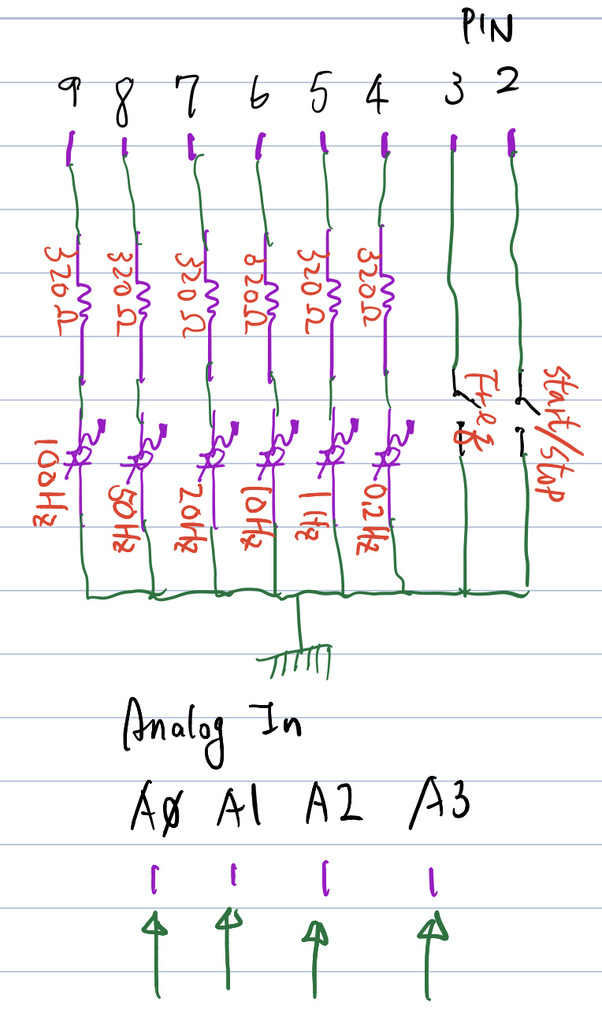 PIN
9 8 7 6 5 4 3 2
320Ω 320Ω 320Ω 820Ω 320Ω 320Ω
Start/stop
100Hz 50Hz 20Hz 10Hz 1Hz 0.2Hz
Analog In
A0 A1 A2 A3